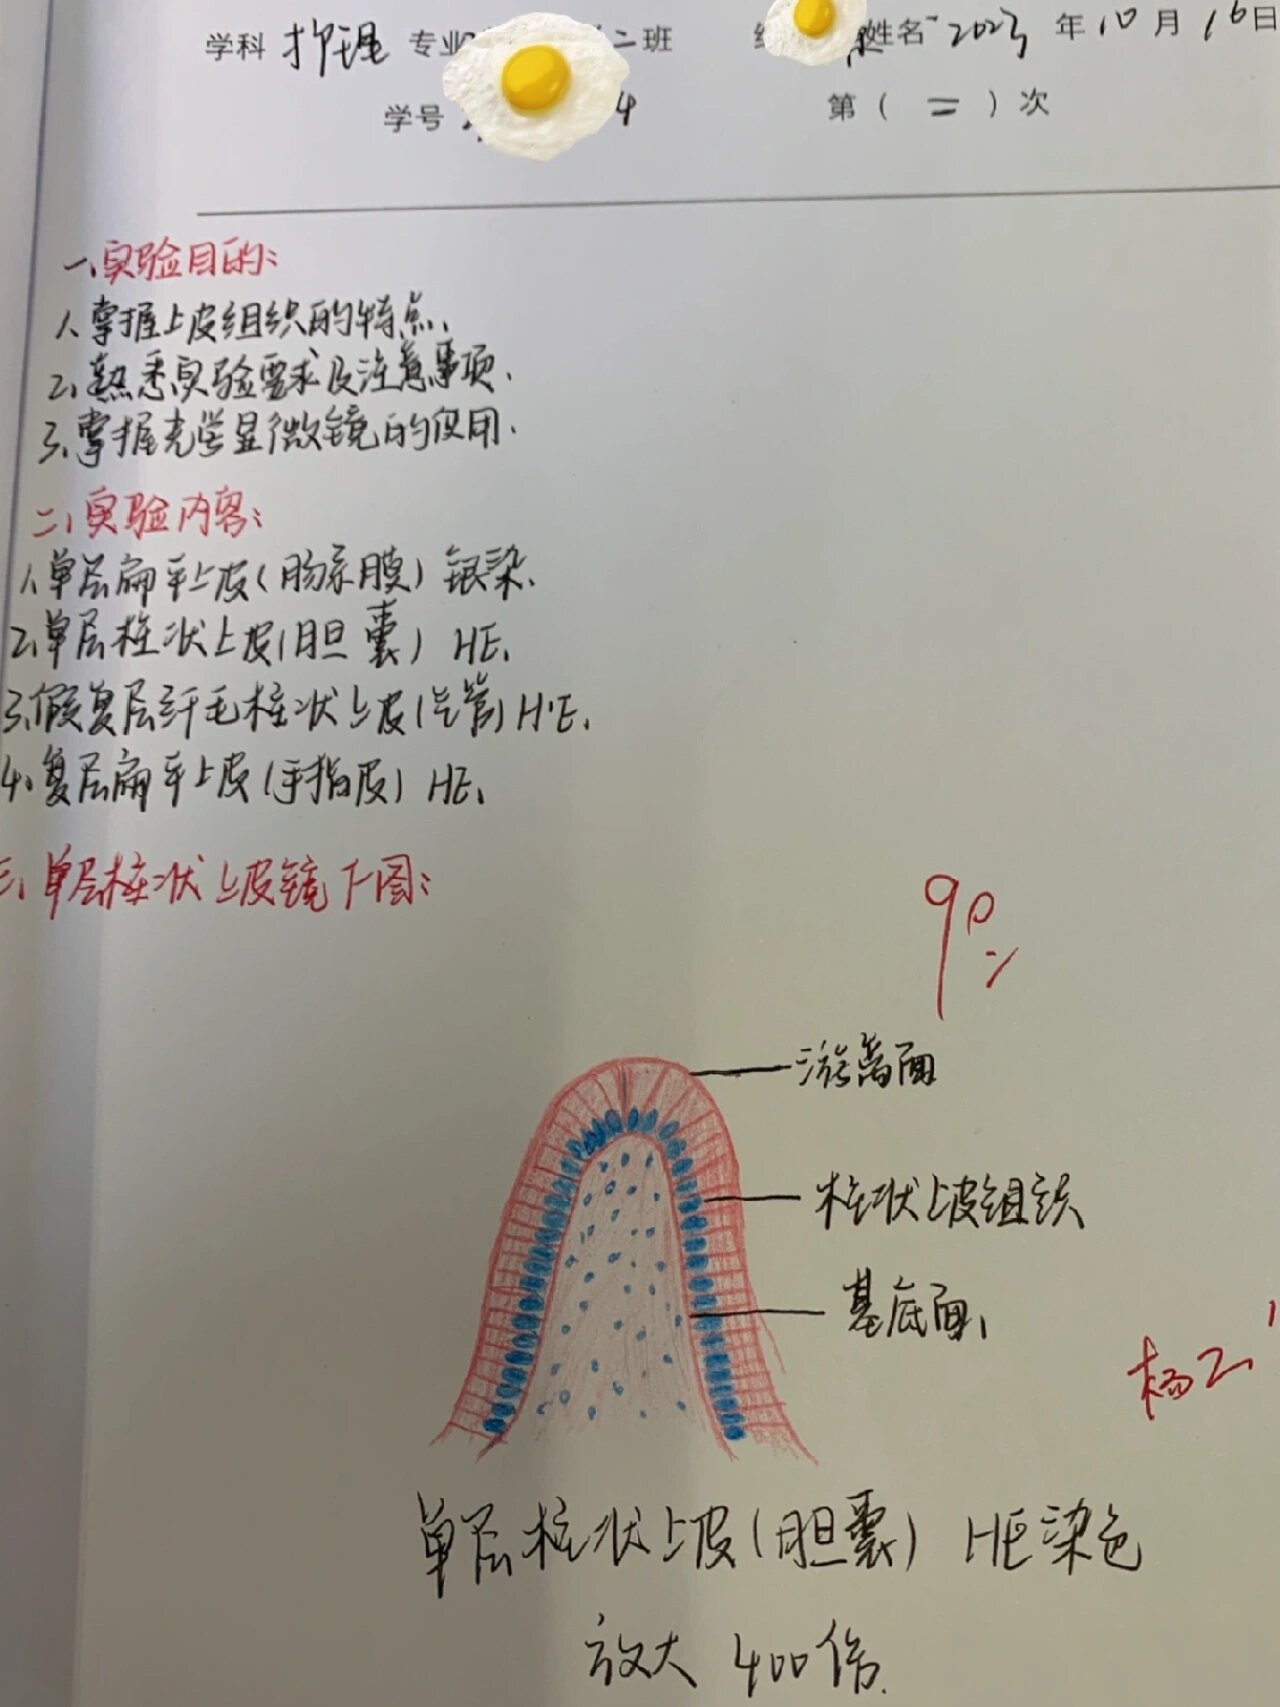 学科 护理 专业 二班 姓名 2023年10月16日
学号 4 第（二）次
一、实验目的:
1、掌握上皮组织的特点、
2、熟悉实验要求及注意事项、
3、掌握光学显微镜的使用、
二、实验内容:
1、单层扁平上皮(肠系膜)银染、
2、单层柱状上皮(胆囊) HE、
3、假复层纤毛柱状上皮(气管)H·E、
4、复层扁平上皮(手指皮) HE、
三、单层柱状上皮镜下图:
90
游离面
柱状上皮组织
基底面、
单层柱状上皮(胆囊) HE染色
放大 400倍.